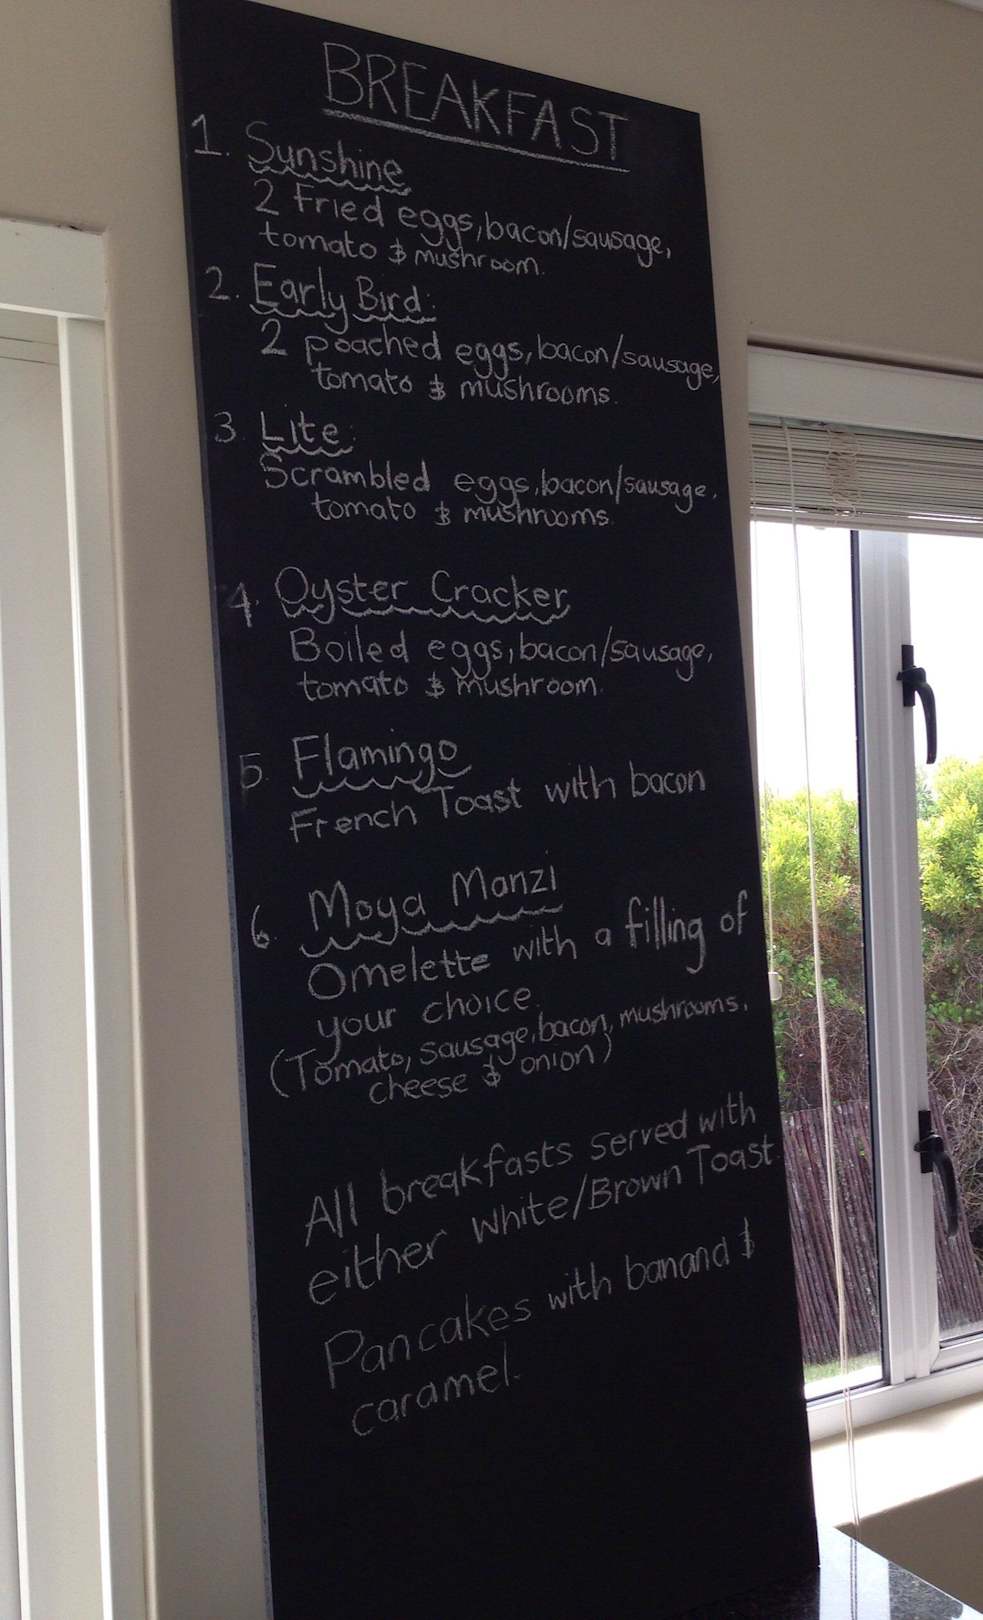 BREAKFAST
1. Sunshine
2 Fried eggs, bacon/sausage,
tomato & mushroom.
2. Early Bird:
2 poached eggs, bacon/sausage,
tomato & mushrooms.
3. Lite:
Scrambled eggs, bacon/sausage,
tomato & mushrooms.
4. Oyster Cracker
Boiled eggs, bacon/sausage,
tomato & mushroom.
5. Flamingo
French Toast with bacon
6. Moya Manzi
Omelette with a filling of
your choice.
(Tomato, sausage, bacon, mushrooms,
cheese & onion)
All breakfasts served with
either White/Brown Toast.
Pancakes with banana &
caramel.